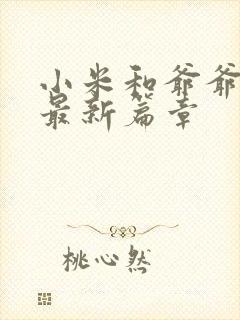 小米和爷爷
最新篇章
桃心然